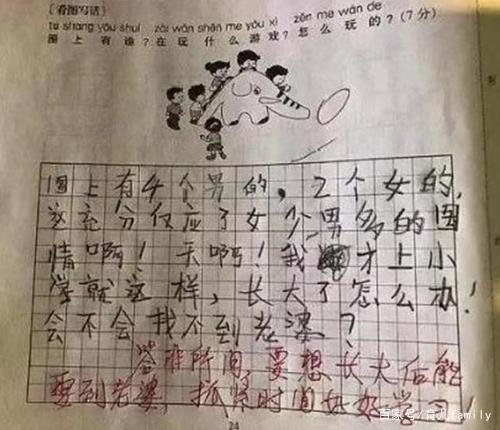 ［看图写话］
tu shang yǒu shuí zài wán shén me yóu xì zěn me wán de
图上有谁？在玩什么游戏？怎么玩的？(7分)
图上有4个男的，2个女的，
这充分仅应了女少男多的国
情啊！天啊！我才上小
学就这样，长大了怎么办！
会不会找不到老婆？
答非所问，要想长大后能
娶到老婆，抓紧时间好好学习！
24
百家号/育儿family